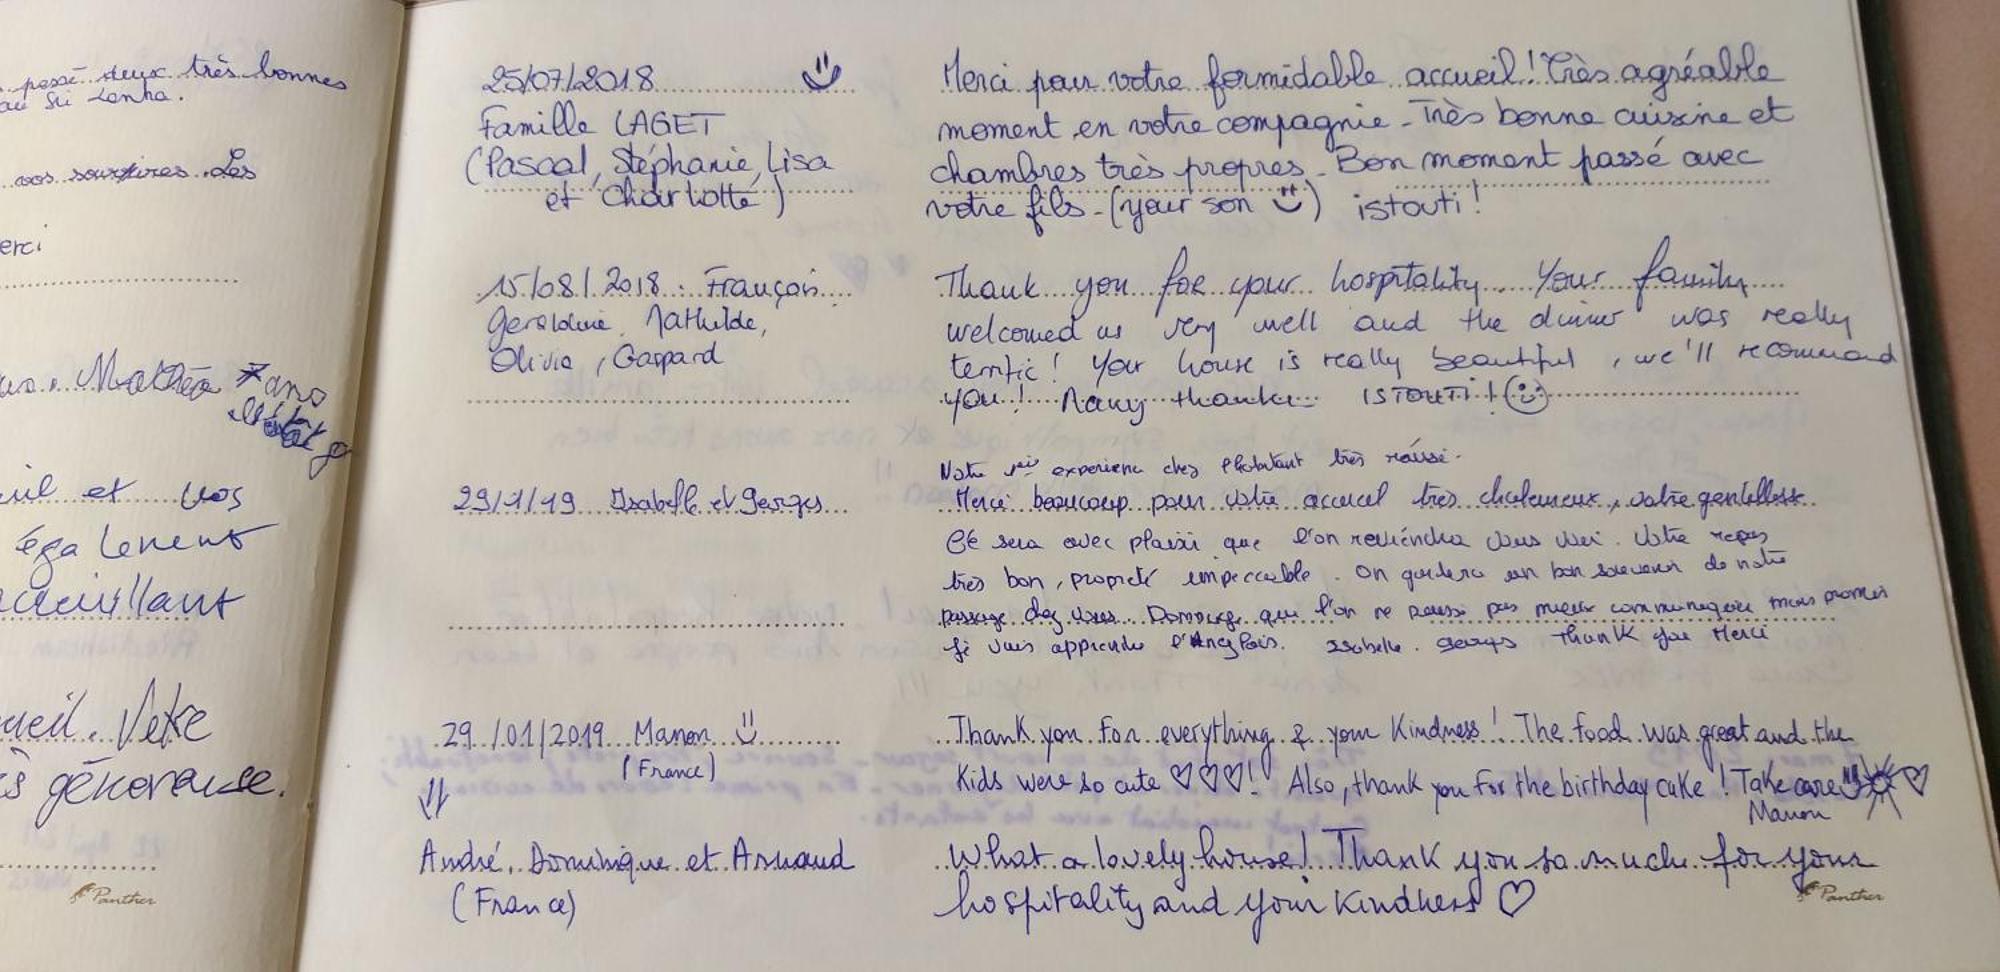 passé deux très bonnes
au Sri Lanka.
vos sourires. Les
erci
Mathéo 7 ans
et vos
également
accueillant
ueil. Votre
s généreuse.
Panther
25/07/2018
Famille LAGET
(Pascal, Stéphanie, Lisa
et Charlotte)
Merci pour votre formidable accueil! Très agréable
moment en votre compagnie - Très bonne cuisine et
chambres très propres - Bon moment passé avec
votre fils - (your son) istouti!
15/08/2018 : François
Geraldine, Mathilde,
Olivia, Gaspard
Thank you for your hospitality. Your family
welcomed us very well and the dinner was really
terrific! Your house is really beautiful, we'll recommand
you! Many thanks ISTOUTI!
29/1/19 Isabelle et Georges
Notre experience chez l'habitant très réussi.
Merci beaucoup pour votre accueil très chaleureux, votre gentillesse
Ce sera avec plaisir que l'on reviendra vous voir. Votre repas
très bon, propreté impeccable. On gardera un bon souvenir de notre
passage chez vous. Dommage que l'on ne puisse pas mieux communiquer mais promis
je vais apprendre l'Anglais. Isabelle. Georges Thank you Merci
29/01/2019 Manon
(France)
Thank you for everything & your kindness! The food was great and the
kids were so cute ♡♡♡! Also, thank you for the birthday cake! Take care ♡
Manon
André, Dominique et Arnaud
(France)
What a lovely house! Thank you so much for your
hospitality and your kindness ♡
Panther